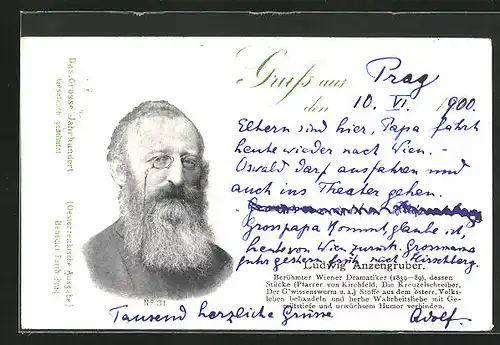 Das Grosse Jahrhundert
Gesetzlich geschützt
(Oesterreichische Ausgabe)
No 31
Gruß aus Prag
den 10. VI. 1900.
Eltern sind hier, Papa fährt
heute wieder nach Wien. –
Oswald darf ausfahren und
auch ins Theater gehen.
Grosspapa kommt, glaube ich,
heute von Wien zurück. Grossmama
fuhr gestern früh nach Hirschberg.
Ludwig Anzengruber.
Berühmter Wiener Dramatiker (1839–89), dessen
Stücke (Pfarrer von Kirchfeld, Die Kreuzelschreiber,
Der G'wissenswurm u. a.) Stoffe aus dem österr. Volks-
leben behandeln und herbe Wahrheitsliebe mit Ge-
mütstiefe und urwüchsem Humor verbinden.
Tausend herzliche Grüsse
Adolf.